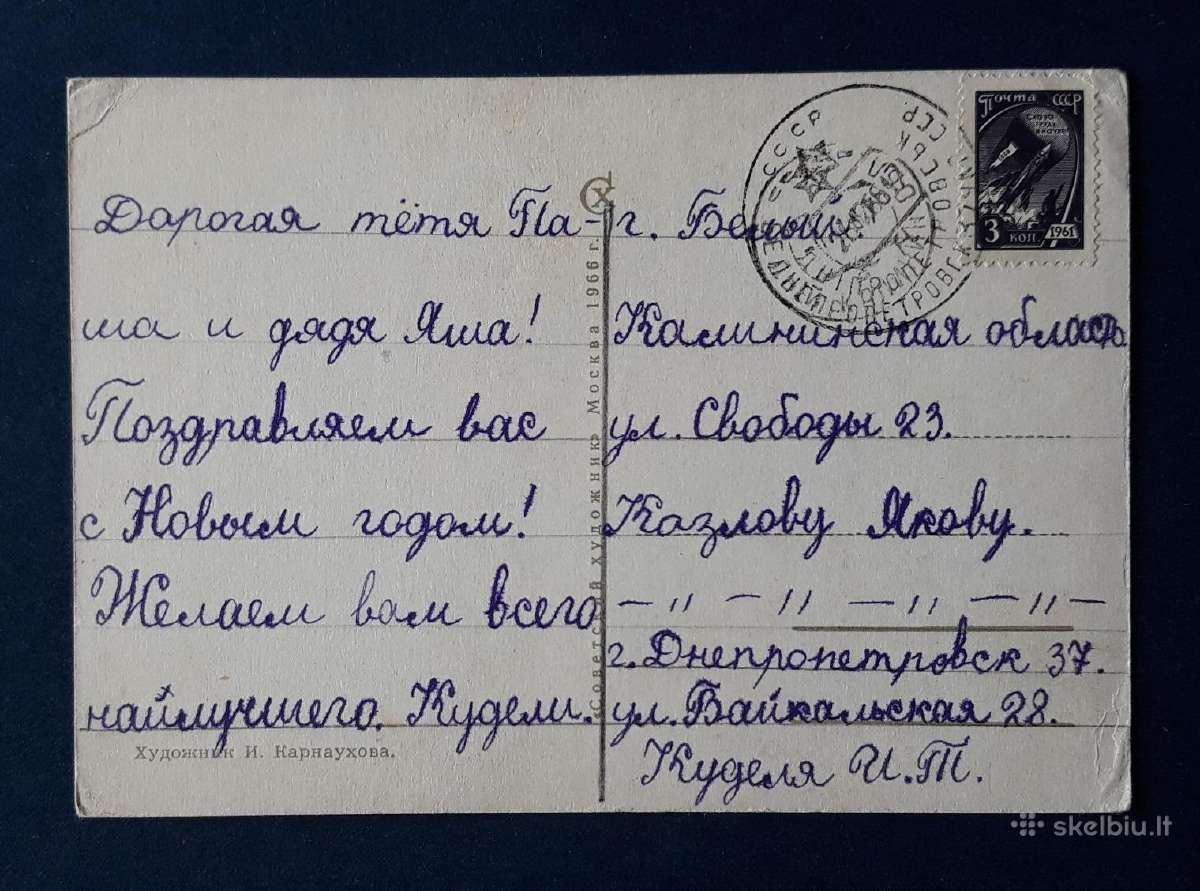 Дорогая тётя Па-
ша и дядя Яша!
Поздравляем вас
с Новым годом!
Желаем вам всего
найлучшего. Кудели.
Художник И. Карнаухова.
«Советский художник» Москва 1966 г.
Почта СССР
3 коп. 1961
СССР
г. Белый
Калининская область
ул. Свободы 23.
Казлову Якову.
— 〃 — 〃 — 〃 — 〃 —
г. Днепропетровск 37.
ул. Байкальская 28.
Куделя И.Т.
skelbiu.lt